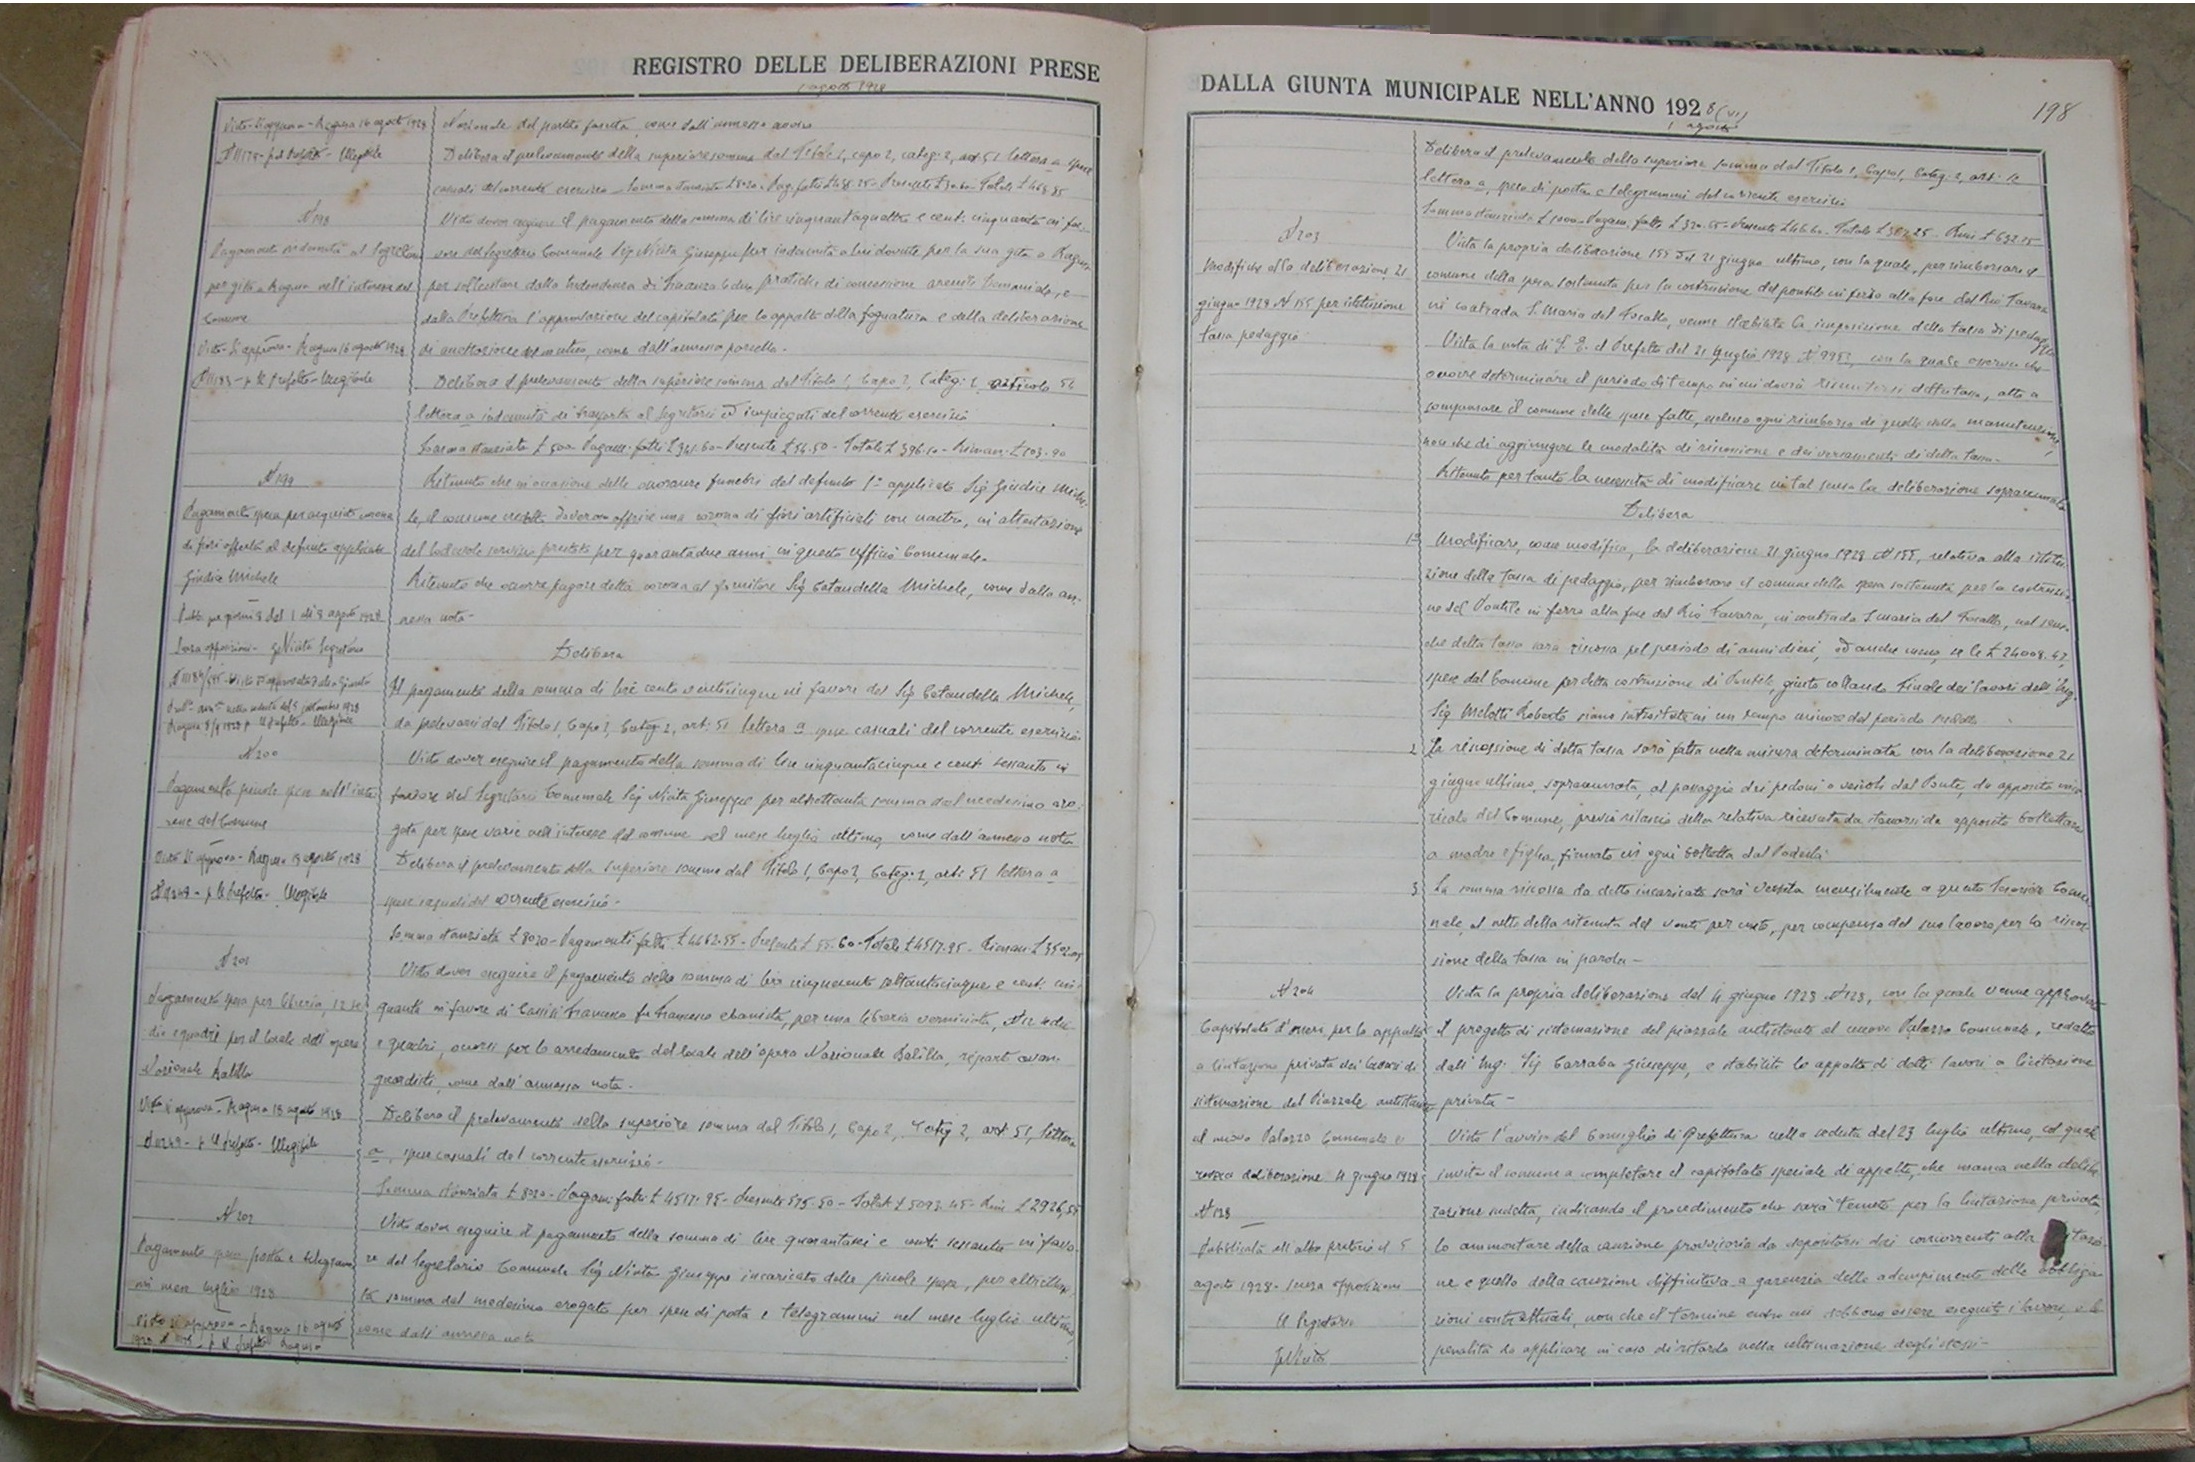 REGISTRO DELLE DELIBERAZIONI PRESE
1 agosto 1928
Visto - Si approva - Ragusa 16 agosto 1928
N 11179 - p. il Prefetto - Illegibile
Nazionale del partito fascista, come dall'annesso avviso
Delibera il prelevamento della superiore somma dal Titolo 1, capo 2, categ. 2, art 51 lettera a spese
casuali del corrente esercizio
N 198
Pagamento indennità al Segretario
per gita a Ragusa nell'interesse del
Comune
Visto - Si approva - Ragusa 16 agosto 1928
N 11183 - p. Il Prefetto - Illegibile
Visto dover eseguire il pagamento della somma di lire cinquantaquattro e cent. cinquanta in fa-
vore del Segretario Comunale Sig Niuta Giuseppe per indennità a lui dovute per la sua gita a Ragusa
per sollecitare dalla Intendenza di Finanza le due pratiche di concessione arenili Demaniale, e
dalla Prefettura l'approvazione del capitolato per lo appalto della fognatura e della deliberazione
di mutuo, come dall'annessa parcella.
Delibera il prelevamento della superiore somma dal Titolo 1, Capo 2, Categ. 2, articolo 56
lettera a indennità di trasporto al Segretario ed impiegati del corrente esercizio
Somma stanziata £ 500 - Pagam. fatti £ 341.60 - Presente £ 54.50 - Totale £ 396.10 - Riman. £ 103.90
N 199
Pagamento spesa per acquisto corona
di fiori offerta al defunto applicato
Giudice Michele
Pubb. per giorni 8 dal 1 al 8 agosto 1928
Senza opposizioni - G. Niuta Segretario
Ritenuto che in occasione delle onoranze funebri del defunto 1° applicato Sig Giudice Miche-
le, il comune credette doveroso offrire una corona di fiori artificiali con nastro, in attestazione
del lodevole servizio prestato per quarantadue anni in questo ufficio Comunale.
Ritenuto che occorre pagare detta corona al fornitore Sig Cataudella Michele, come dalla an-
nessa nota -
Delibera
Il pagamento della somma di lire cento venticinque in favore del Sig Cataudella Michele,
da prelevarsi dal Titolo 1, Capo 2, Categ. 2, art. 51 lettera a spese casuali del corrente esercizio
N 200
Pagamento piccole spese nell'inte-
resse del Comune
Visto Si approva - Ragusa 18 agosto 1928
p. Il Prefetto - Illegibile
Visto dover eseguire il pagamento della somma di lire cinquantacinque e cent. sessanta in
favore del Segretario Comunale Sig Niuta Giuseppe per altrettanta somma dal medesimo ero-
gata per spese varie nell'interesse del comune nel mese luglio ultimo, come dall'annessa nota
Delibera il prelevamento della superiore somma dal Titolo 1, Capo 2, Categ. 2, art. 51 lettera a
spese casuali del corrente esercizio -
Somma stanziata £ 8020 - Pagamenti fatti £ 4462.35 - Presente £ 55.60 - Totale £ 4517.95 - Riman. £ 3502.05
N 201
Pagamento spesa per libreria, 12 se-
die e quadri per il locale dell'opera
Nazionale Balilla
Visto Si approva - Ragusa 18 agosto 1928
p. Il Prefetto - Illegibile
Visto dover eseguire il pagamento della somma di lire cinquecento settantacinque e cent. cin-
quanta in favore di Francesco fu Francesco ebanista, per una libreria verniciata, N 12 sedie
e quadri, occorsi per lo arredamento del locale dell'opera Nazionale Balilla, reparti avan-
guardisti, come dall'annessa nota.
Delibera il prelevamento della superiore somma dal Titolo 1, Capo 2, Categ 2, art 51, lettera
a, spese casuali del corrente esercizio -
Somma stanziata £ 8020 - Pagam. fatti £ 4517.95 - Presente 575.50 - Totale £ 5093.45 - Rim. £ 2926,55
N 202
Pagamento spese posta e telegram-
mi mese luglio 1928
Visto si approva - Ragusa 16 agosto
Visto dover eseguire il pagamento della somma di lire quarantasei e cent. sessanta in favo-
re del Segretario Comunale Sig Niuta Giuseppe incaricato delle piccole spese, per altrettan-
ta somma dal medesimo erogata per spese di posta e telegrammi nel mese luglio ultimo,
come dall'annessa nota
DALLA GIUNTA MUNICIPALE NELL'ANNO 1928 (VI)
1 agosto
198
Delibera il prelevamento della superiore somma dal Titolo 1, Capo 1, Categ. 2, art. 10
lettera a, spese di posta e telegrammi del corrente esercizio
N 203
Modifiche alla deliberazione 21
giugno 1928 N 155 per istituzione
tassa pedaggio
Vista la propria deliberazione 155 del 21 giugno ultimo, con la quale, per rimborsare il
comune della spesa sostenuta per la costruzione del pontile in ferro alla foce del Rio Favara
in contrada S. Maria del Focallo, venne stabilita la imposizione della tassa di pedaggio
Vista la nota di S. E. il Prefetto del 21 luglio 1928 N 9983, con la quale osserva che
occorre determinare il periodo di tempo in cui dovrà riscuotersi detta tassa, atto a
compensare il comune delle spese fatte, escluso ogni rimborso di quelle della manutenzione,
non che di aggiungere le modalità di riscossione e dei versamenti di detta tassa -
Ritenuto pertanto la necessità di modificare in tal senso la deliberazione sopracennata
Delibera
1° Modificare, come modifica, la deliberazione 21 giugno 1928 N 155, relativa alla istitu-
zione della tassa di pedaggio, per rimborsare il comune della spesa sostenuta per la costruzio-
ne del Pontile in ferro alla foce del Rio Favara, in contrada S Maria del Focallo, nel senso
che detta tassa sarà riscossa pel periodo di anni dieci, od anche meno, se le £ 24008.47,
spese dal Comune per detta costruzione di Pontile, giusto collaudo finale dei lavori dell'Ing.
Sig Melotti Roberto siano introitate in un tempo minore del periodo suddetto
2 La riscossione di detta tassa sarà fatta nella misura determinata con la deliberazione 21
giugno ultimo, sopracennata, al passaggio dei pedoni o veicoli dal Ponte, da apposito inca-
ricato del Comune, previo rilascio della relativa ricevuta da staccarsi da apposito bollettario
a madre e figlia, firmato in ogni bolletta dal Podestà
3 La somma riscossa da detto incaricato sarà versata mensilmente a questo Tesoriere Comu-
nale, al netto della ritenuta del venti per cento, per compenso del suo lavoro per la riscos-
sione della tassa in parola -
N 204
Capitolato d'oneri per lo appalto
a licitazione privata dei lavori di
sistemazione del Piazzale antistante
al nuovo Palazzo Comunale e
revoca deliberazione 4 giugno 1928
N 128
Pubblicata all'albo pretorio il 5
agosto 1928 - senza opposizioni
Il Segretario
G. Niuta
Vista la propria deliberazione del 4 giugno 1928 N 128, con la quale venne approvato
il progetto di sistemazione del piazzale antistante al nuovo Palazzo Comunale, redatto
dall'Ing. Sig Carraba Giuseppe, e stabilito lo appalto di detti lavori a licitazione
privata -
Visto l'avviso del Consiglio di Prefettura nella seduta del 23 luglio ultimo, col quale
invita il comune a completare il capitolato speciale di appalto, che manca nella delibe-
razione suddetta, indicando il procedimento che sarà tenuto per la licitazione privata,
lo ammontare della cauzione provvisoria da depositarsi dai concorrenti alla
ne e quello della cauzione diffinitiva a garanzia delle adempimento delle obbliga-
zioni contrattuali, non che il termine entro cui debbono essere eseguiti i lavori, e le
penalità da applicare in caso di ritardo nella ultimazione degli stessi -